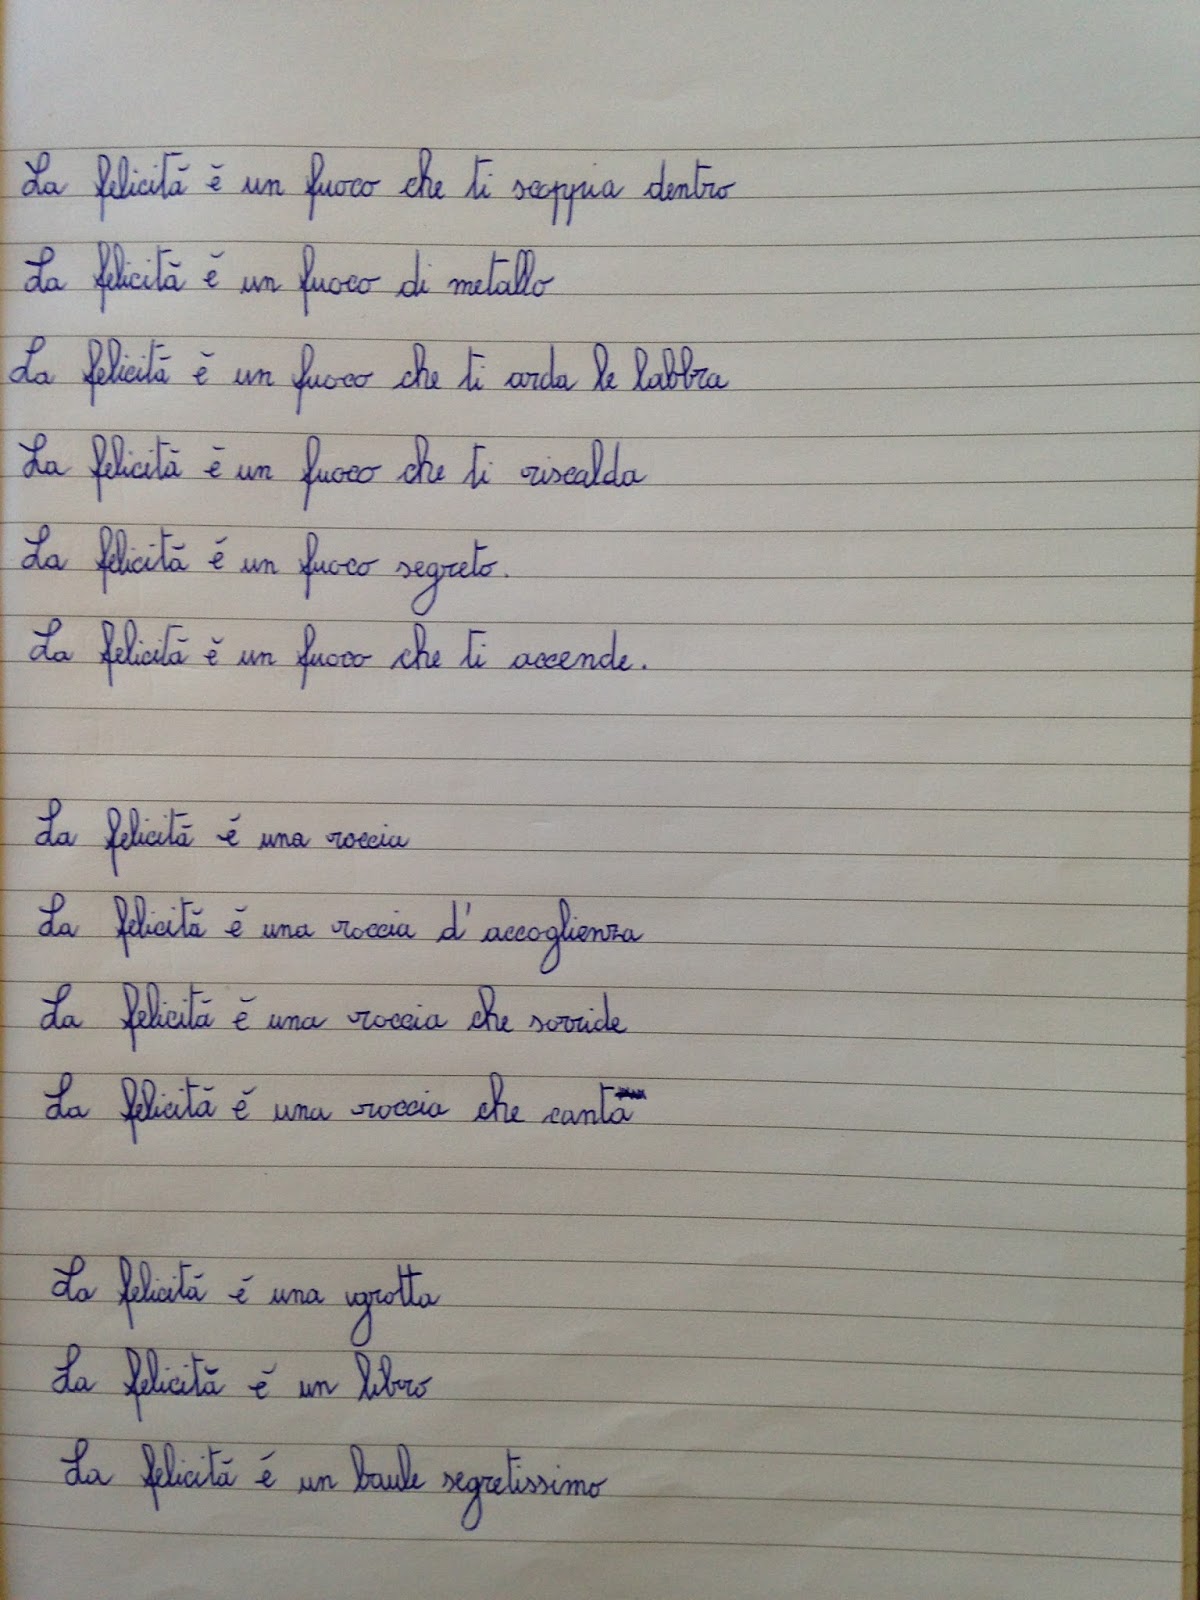 La felicità è un fuoco che ti scoppia dentro
La felicità è un fuoco di metallo
La felicità è un fuoco che ti arda le labbra
La felicità è un fuoco che ti riscalda
La felicità è un fuoco segreto.
La felicità è un fuoco che ti accende.
La felicità è una roccia
La felicità è una roccia d'accoglienza
La felicità è una roccia che sorride
La felicità è una roccia che canta
La felicità è una grotta
La felicità è un libro
La felicità è un baule segretissimo